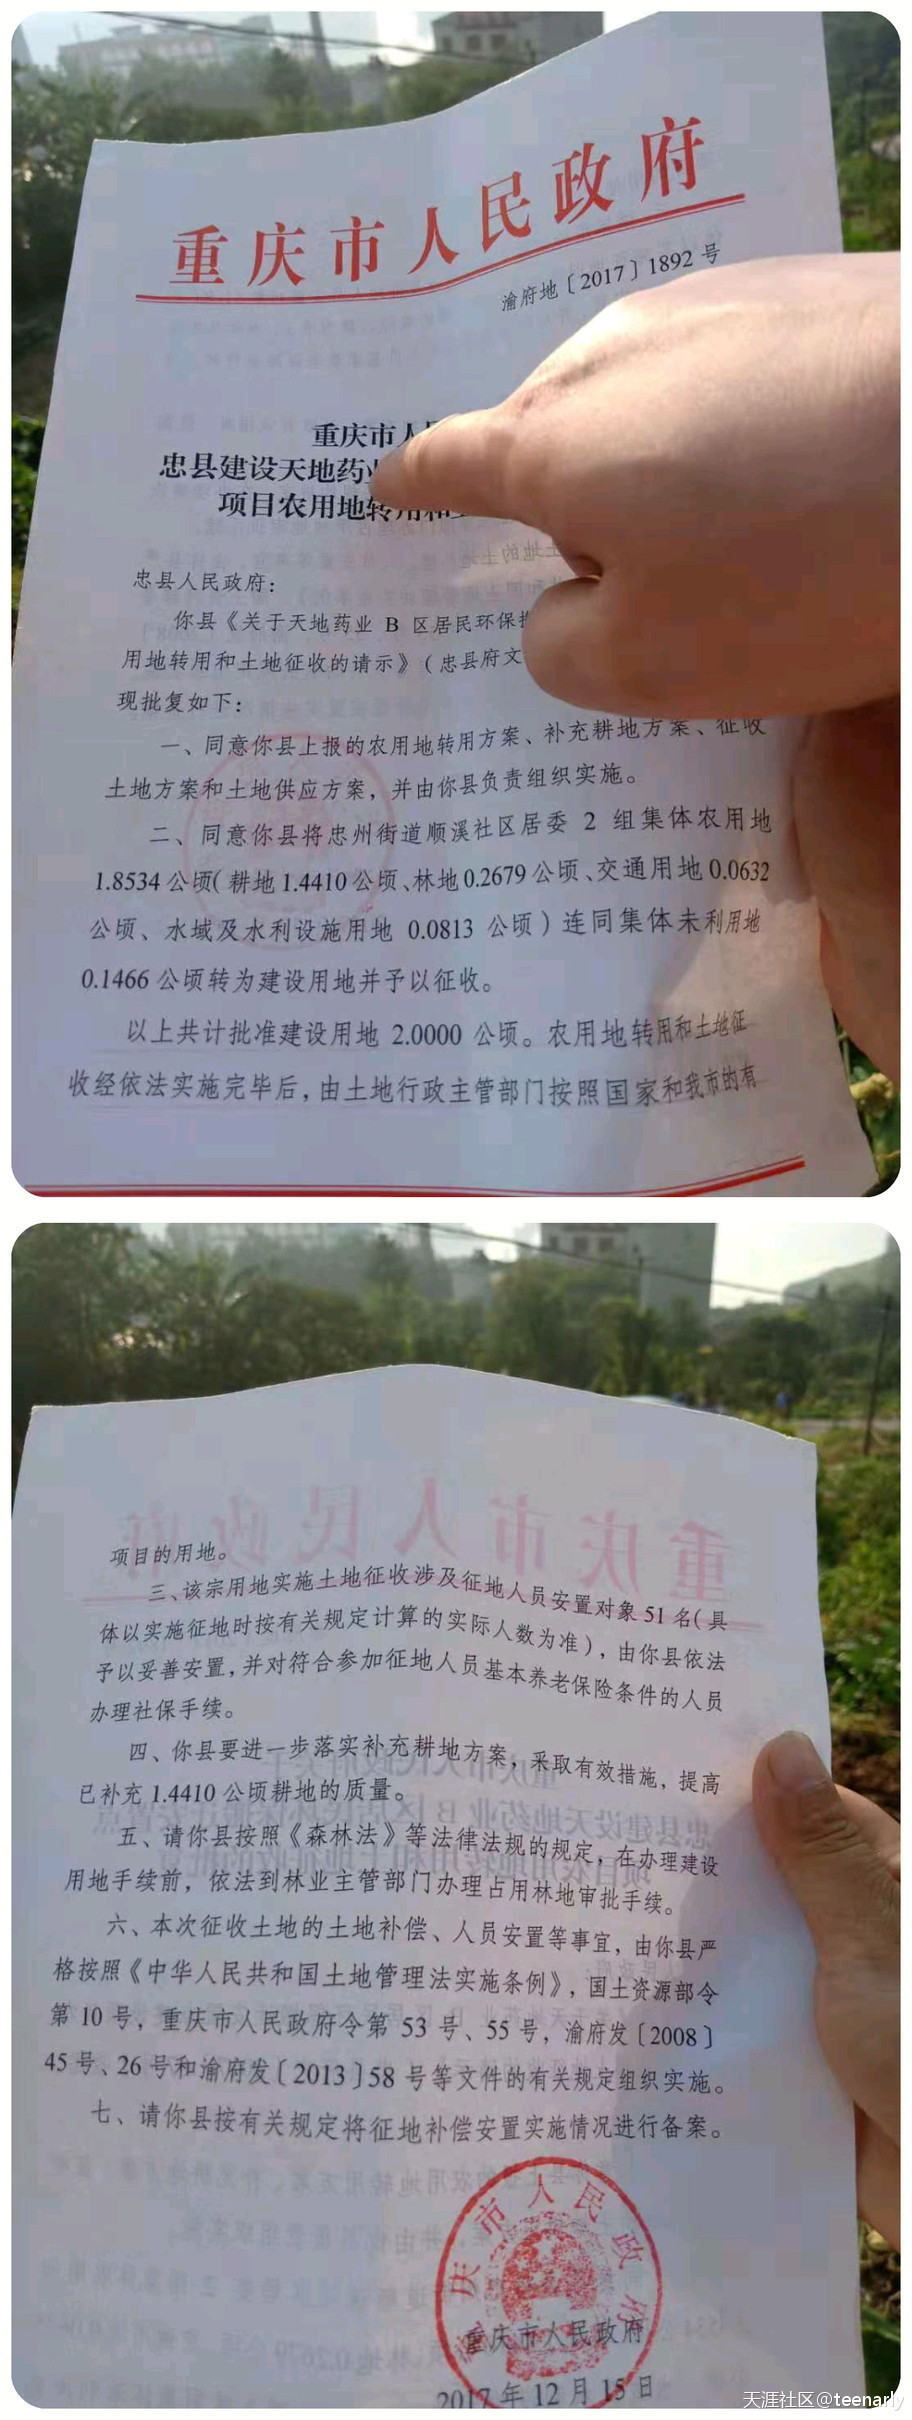 重庆市人民政府
渝府地〔2017〕1892 号
重庆市人
忠县建设天地药业
项目农用地转用和
忠县人民政府：
你县《关于天地药业 B 区居民环保
用地转用和土地征收的请示》（忠县府文
现批复如下：
一、同意你县上报的农用地转用方案、补充耕地方案、征收
土地方案和土地供应方案，并由你县负责组织实施。
二、同意你县将忠州街道顺溪社区居委 2 组集体农用地
1.8534 公顷（耕地 1.4410 公顷、林地 0.2679 公顷、交通用地 0.0632
公顷、水域及水利设施用地 0.0813 公顷）连同集体未利用地
0.1466 公顷转为建设用地并予以征收。
以上共计批准建设用地 2.0000 公顷。农用地转用和土地征
收经依法实施完毕后，由土地行政主管部门按照国家和我市的有
项目的用地。
三、该宗用地实施土地征收涉及征地人员安置对象 51 名（具
体以实施征地时按有关规定计算的实际人数为准），由你县依法
予以妥善安置，并对符合参加征地人员基本养老保险条件的人员
办理社保手续。
四、你县要进一步落实补充耕地方案，采取有效措施，提高
已补充 1.4410 公顷耕地的质量。
五、请你县按照《森林法》等法律法规的规定，在办理建设
用地手续前，依法到林业主管部门办理占用林地审批手续。
六、本次征收土地的土地补偿、人员安置等事宜，由你县严
格按照《中华人民共和国土地管理法实施条例》，国土资源部令
第 10 号，重庆市人民政府令第 53 号、55 号，渝府发〔2008〕
45 号、26 号和渝府发〔2013〕58 号等文件的有关规定组织实施。
七、请你县按有关规定将征地补偿安置实施情况进行备案。
重庆市人民政府
2017 年 12 月 15 日
天涯社区@teenarly